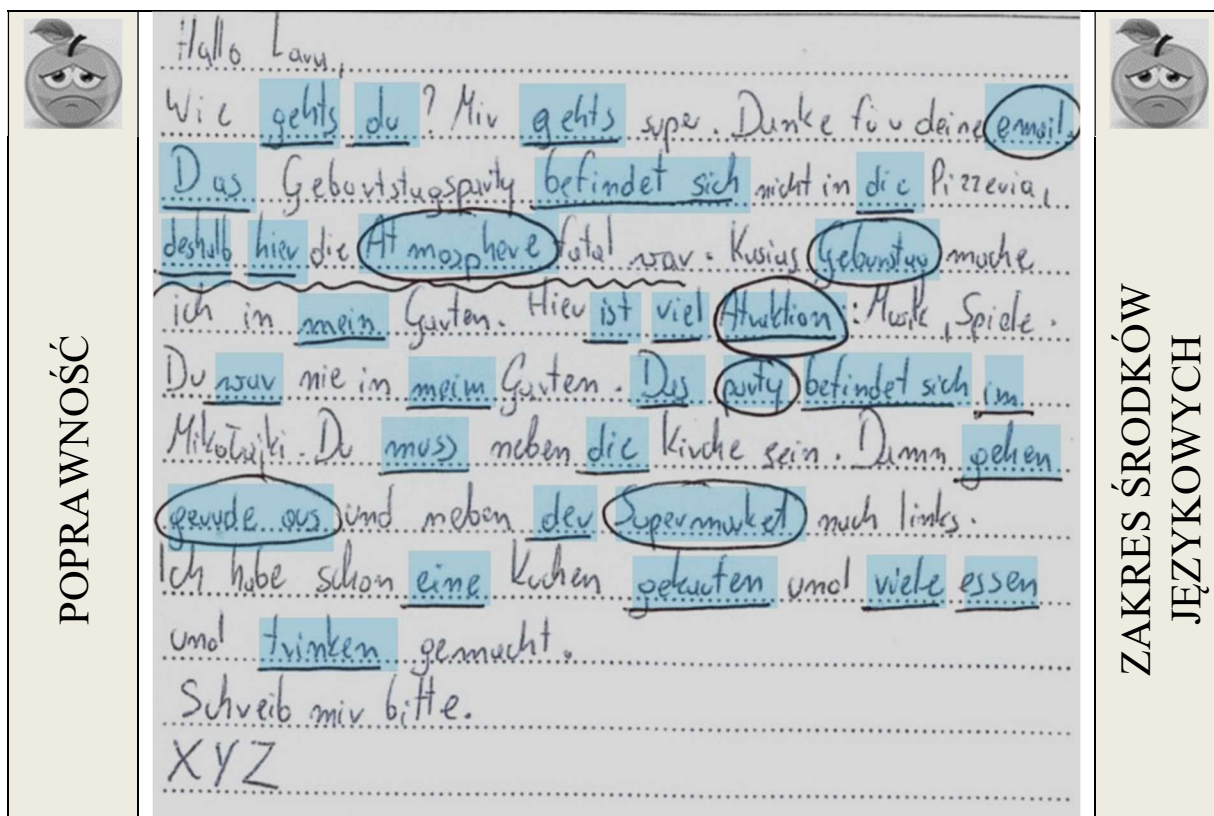 POPRAWNOŚĆ
Hallo Laru,
Wie gehts du? Mir gehts super. Danke für deine email.
Das Gebortstagsparty befindet sich nicht in die Pizzeria,
deshalb hier die Atmosphere fatal war. Kasias Geburstag mache
ich in mein Garten. Hier ist viel Atraktion: Musik, Spiele.
Du war nie in meim Garten. Das party befindet sich im
Mikołajki. Du muss neben die Kirche sein. Dann gehen
gerade aus und neben der Supermarket nach links.
Ich habe schon eine Kuchen gekauten und viele essen
und trinken gemacht.
Schreib mir bitte.
XYZ
ZAKRES ŚRODKÓW
JĘZYKOWYCH